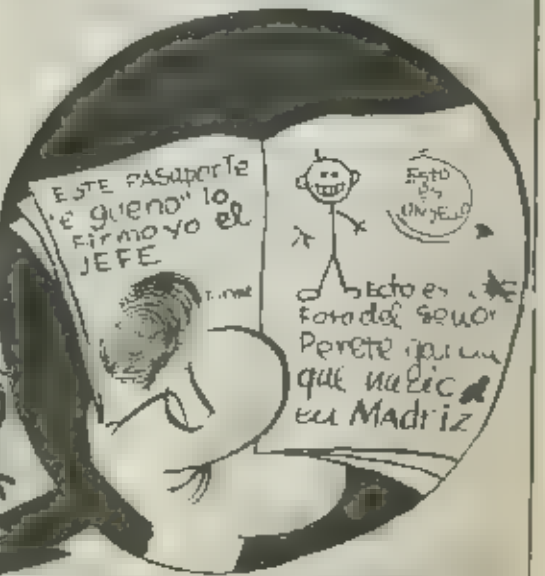 ESTE PASaporTe
"e gueno" lo
Firmo yo el
JEFE
Esto
es
UN SELLO
Ecto es
Foto del Señor
Perete
que nacio
en Madriz